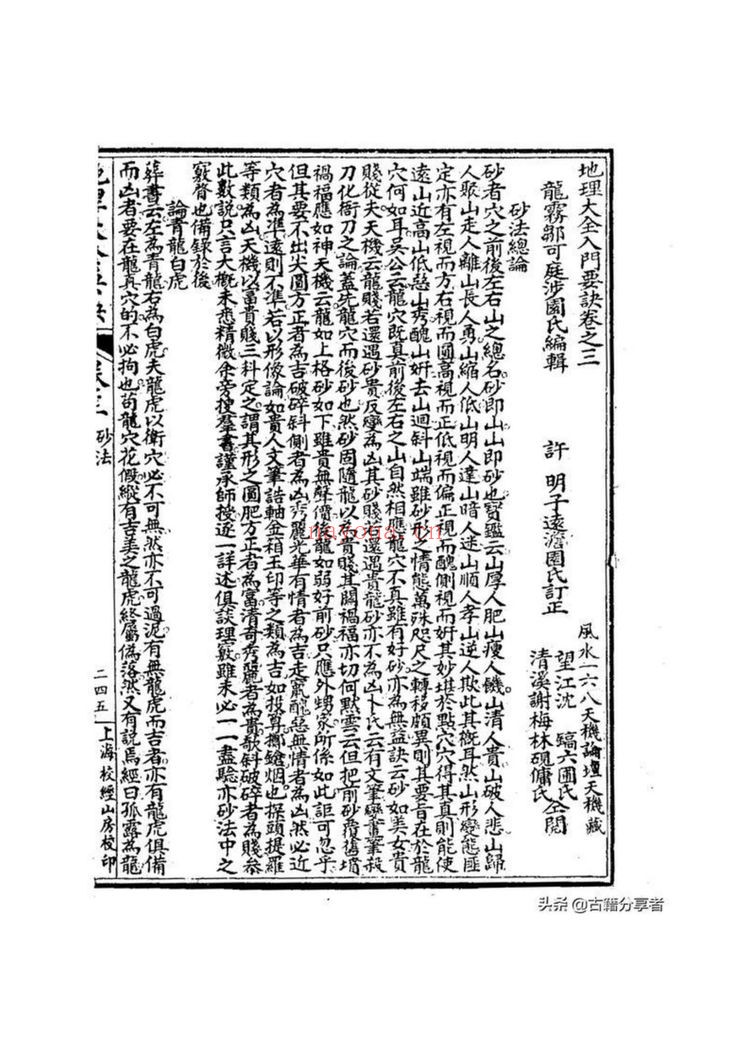 地理大全入門要訣卷之三
風水一六八天機論壇天機藏
龍霧鄒可庭涉園氏編輯
許明子遠澹園氏訂正
望江沈鎬六圃氏
清溪謝梅林硯傭氏
仝閱
砂法總論
砂者穴之前後左右山之總名砂即山山即砂也寶鑑云山厚人肥山瘦人饑山清人貴山破人悲山歸
人聚山走人離山長人勇山縮人低山明人達山暗人迷山順人孝山逆人欺此其概耳然山形變態匪
定亦有左視而方右視而圓高視而正低視而偏正視而醜側視而妍其妙堪於點穴穴得其真則能使
遠山近高山低愁山秀醜山妍去山迴斜山端雖砂形之情態萬殊咫尺之轉移頗異則其要旨在於龍
穴何如耳吳公云龍穴既真前後左右之山自然相應龍穴不真雖有好砂亦為無益訣云砂如美女貴
賤從夫天機云龍賤若還遇砂貴反變為凶其砂賤若還遇貴龍砂亦不為凶卜氏云有文筆變畫筆殺
刀化衙刀之論蓋先龍穴而後砂也然砂固隨龍以為貴賤其關禍福亦切何默雲云但把前砂覆舊墳
禍福應如神天機云龍如上格砂如下雖貴無聲價龍如弱好前砂只應外甥家所係如此詎可忽乎
但其要不出尖圓方正者為吉破碎斜側者為凶秀麗光華有情者為吉走竄醜惡無情者為凶然必近
穴者為準遠則不準若以形像論如貴人文筆誥軸金箱玉印等之類為吉如投算擲鎗烟包探頭提羅
等類為凶天機以富貴賤三科定之謂其形之圓肥方正者為富清奇秀麗者為貴欹斜破碎者為賤叅
此數說只言大概未悉精微余旁搜羣書謹承師授逐一詳述俱談理竅雖未必一一盡驗亦砂法中之
竅脊也備錄於後
論青龍白虎
葬書云左為青龍右為白虎夫龍虎以衛穴必不可無然亦不可過泥有無龍虎而吉者亦有龍虎俱備
而凶者要在龍真穴的不必拘也苟龍穴花假縱有吉美之龍虎終屬偽落然又有說焉經曰孤露為龍
卷三
砂法
二四五
上海校經山房校印
nayona.cn
头条@古籍分享者